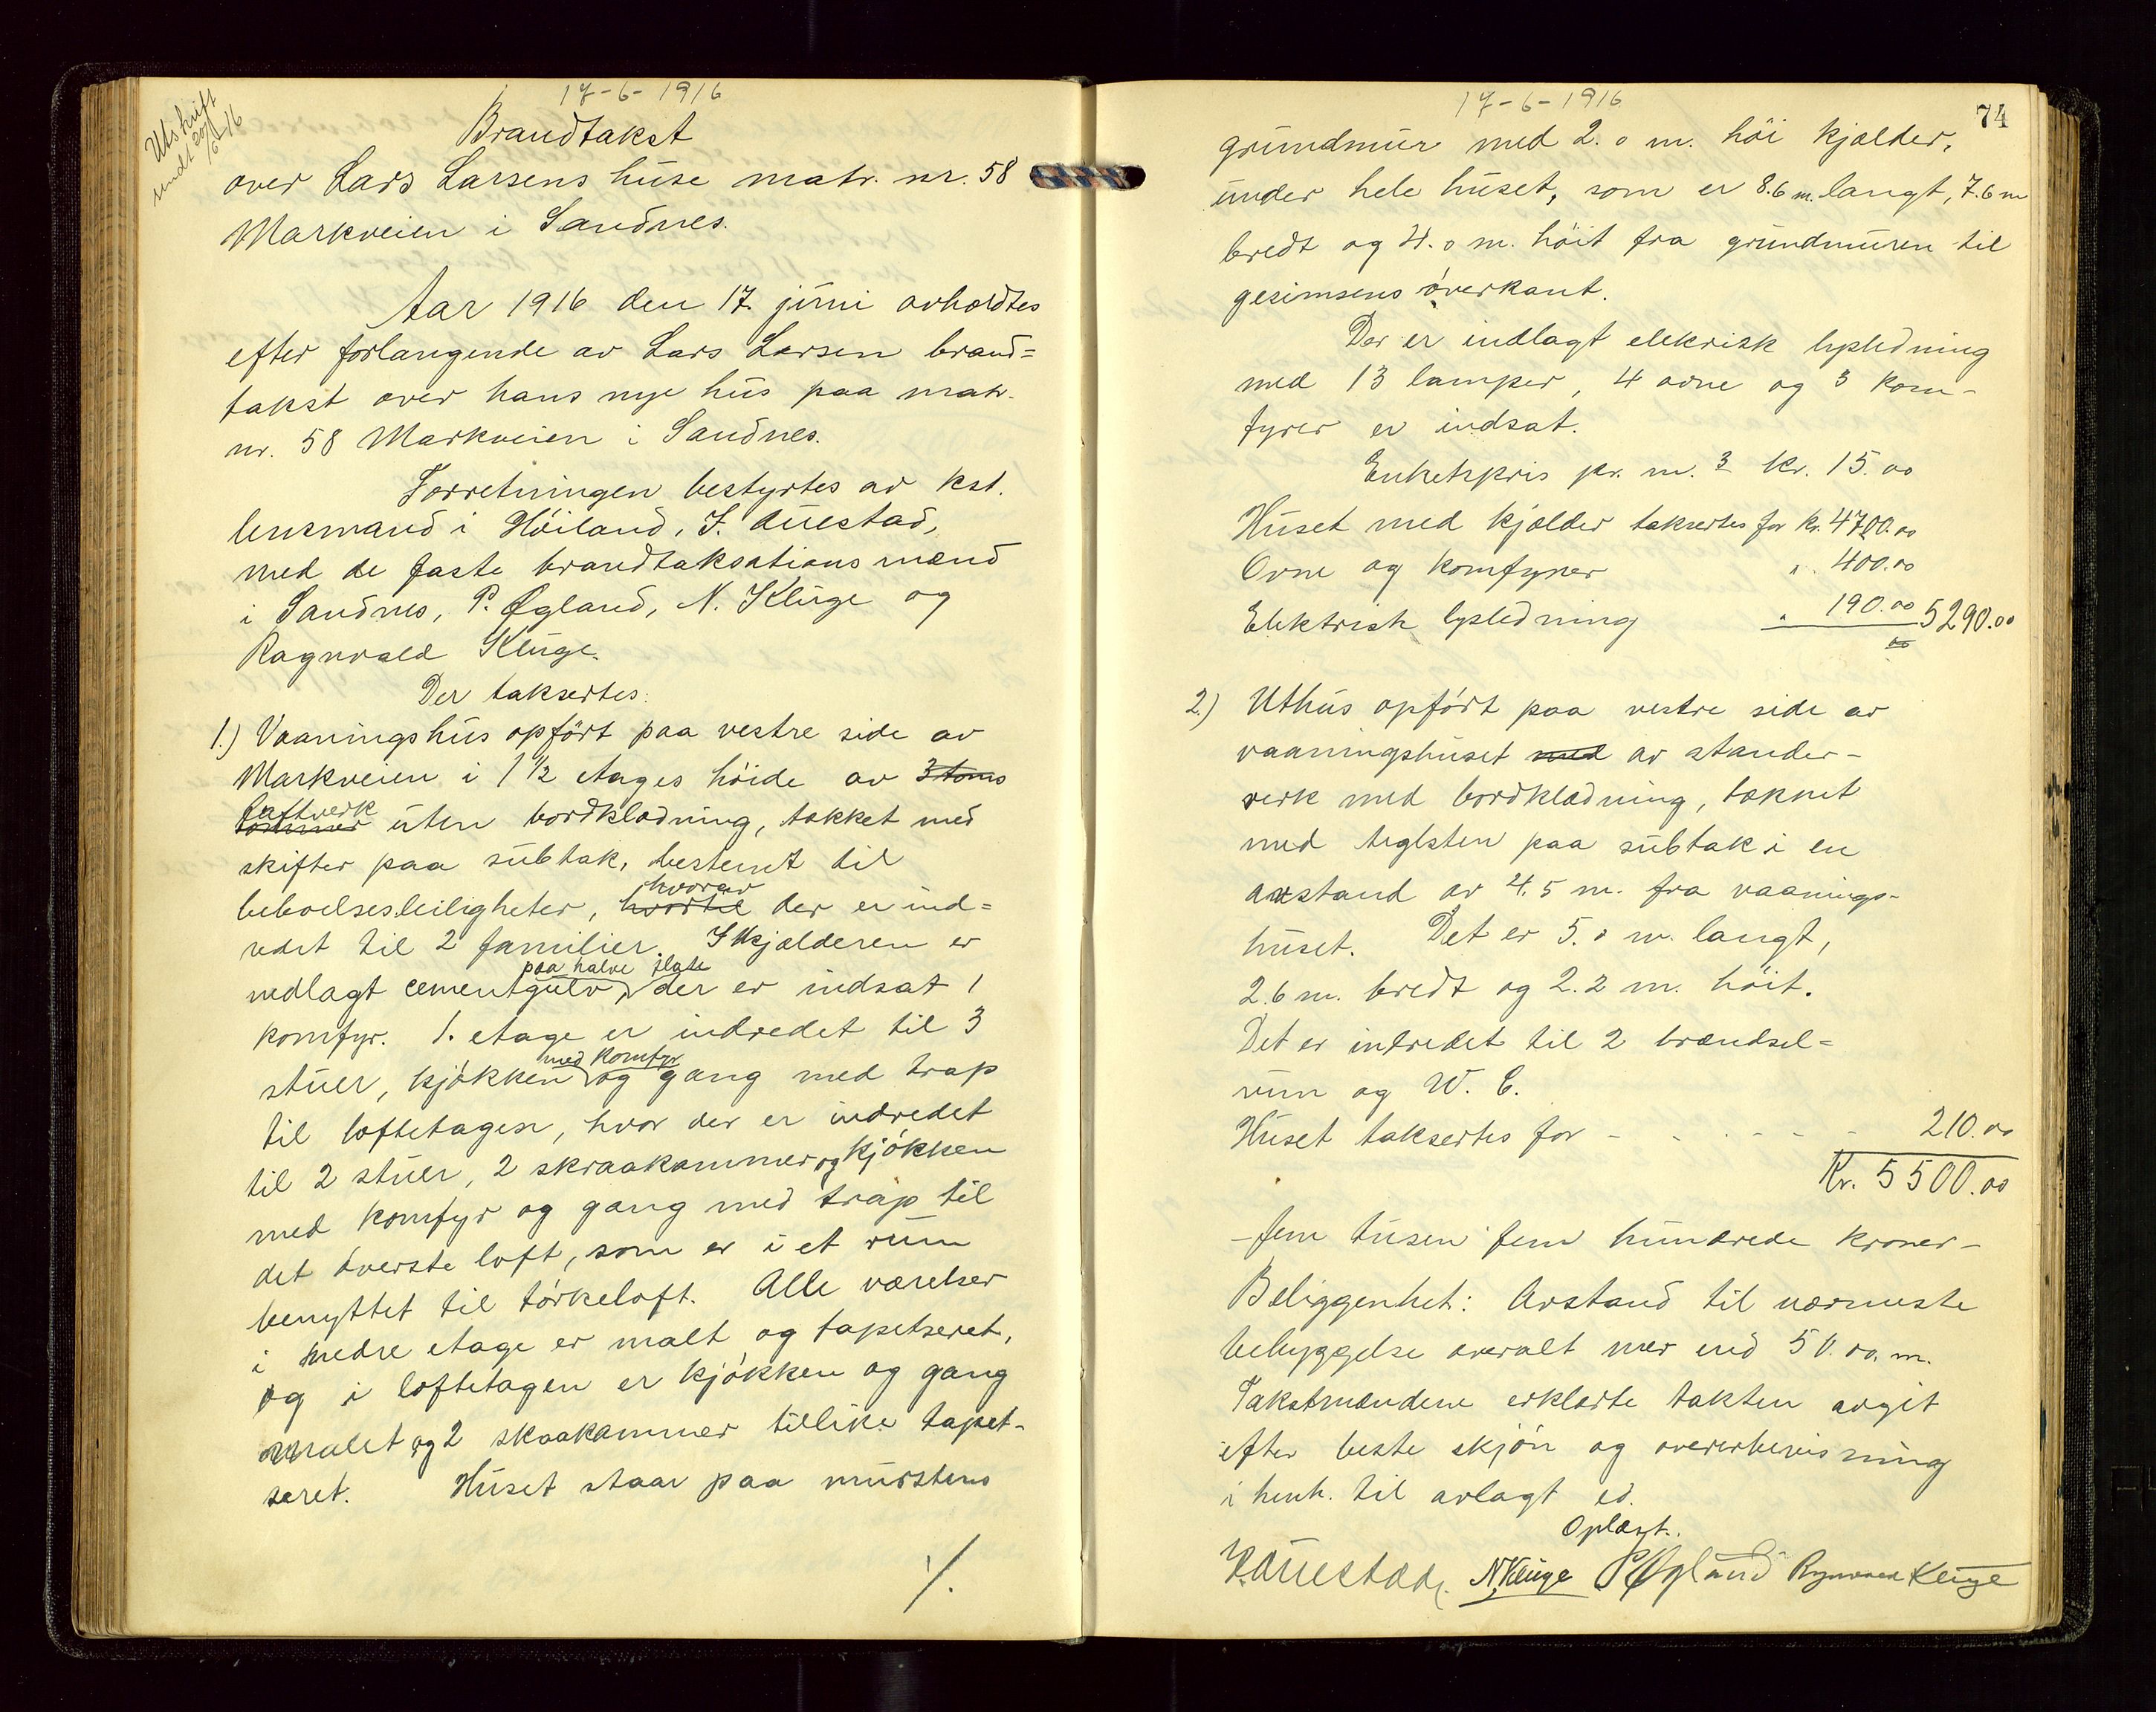 Utskrift
sendt 20/6-16
17-6-1916
Brandtakst
over Lars Larsens huse matr. nr. 58
Markveien i Sandnes.
Aar 1916 den 17. juni avholdtes
efter forlangende av Lars Larsen brand=
takst over hans nye hus paa matr.
nr. 58 Markveien i Sandnes.
Forretningen bestyrtes av kst.
lensmand i Höiland, T. Auestad,
med de faste brandtaksations mænd
i Sandnes, P. Øgland, N. Kluge og
Ragnvald Kluge.
Der taksertes:
1.) Vaaningshus opfört paa vestre side av
Markveien i 1 1/2 etages höide av 3 toms
laftverk
tömmer uten bordklædning, tækket med
skifter paa subtak, bestemt til
hvorav
beboelsesleiligheter, hvortil der er ind=
redet til 2 familier. I kjælderen er
paa halve flate
nedlagt cementgulv, der er indsat 1
komfyr. 1. etage er indredet til 3
med komfyr
stuer, kjökken og gang med trap
til loftetagen, hvor der er indredet
til 2 stuer, 2 skraakammer og kjökken
med komfyr og gang med trap til
det överste loft, som er i et rum
benyttet til törkeloft. Alle værelser
i nedre etage er malt og tapetseret,
og i loftetagen er kjökken og gang
malet og 2 skaakammer tillike tapet-
seret. Huset staar paa murstens
./.
17-6-1916
74
grundmur med 2.0 m. höi kjælder,
under hele huset, som er 8.6 m. langt, 7.6 m
bredt og 4.0 m. höit fra grundmuren til
gesimsens överkant.
Der er indlagt elekrisk lysledning
med 13 lamper, 4 ovne og 3 kom-
fyrer er indsat.
Enhetspris pr. m.3 kr. 15.00
Huset med kjælder taksertes for kr. 4700.00
Ovne og komfyrer " 400.00
Elektrisk lysledning " 190.00 5290.00
2.) Uthus opfört paa vestre side av
vaaningshuset med av stander-
verk med bordklædning, tækket
med teglsten paa subtak i en
avstand av 4.5 m. fra vaanings-
huset. Det er 5.0 m. langt,
2.6 m. bredt og 2.2 m. höit.
Det er intredet til 2 brændsel=
rum og W. C.
Huset taksertes for - - - - - - 210.00
Kr. 5500.00
-fem tusen fem hundrede kroner-
Beliggenhet: Avstand til nærmeste
bebyggelse overalt mer end 50.00 m.
Takstmændene erklærte takten avgit
efter beste skjön og overerbevisning
i henh. til avlagt ed.
Oplæst.
T. Auestad. N. Kluge P Øgland Ragnvald Kluge